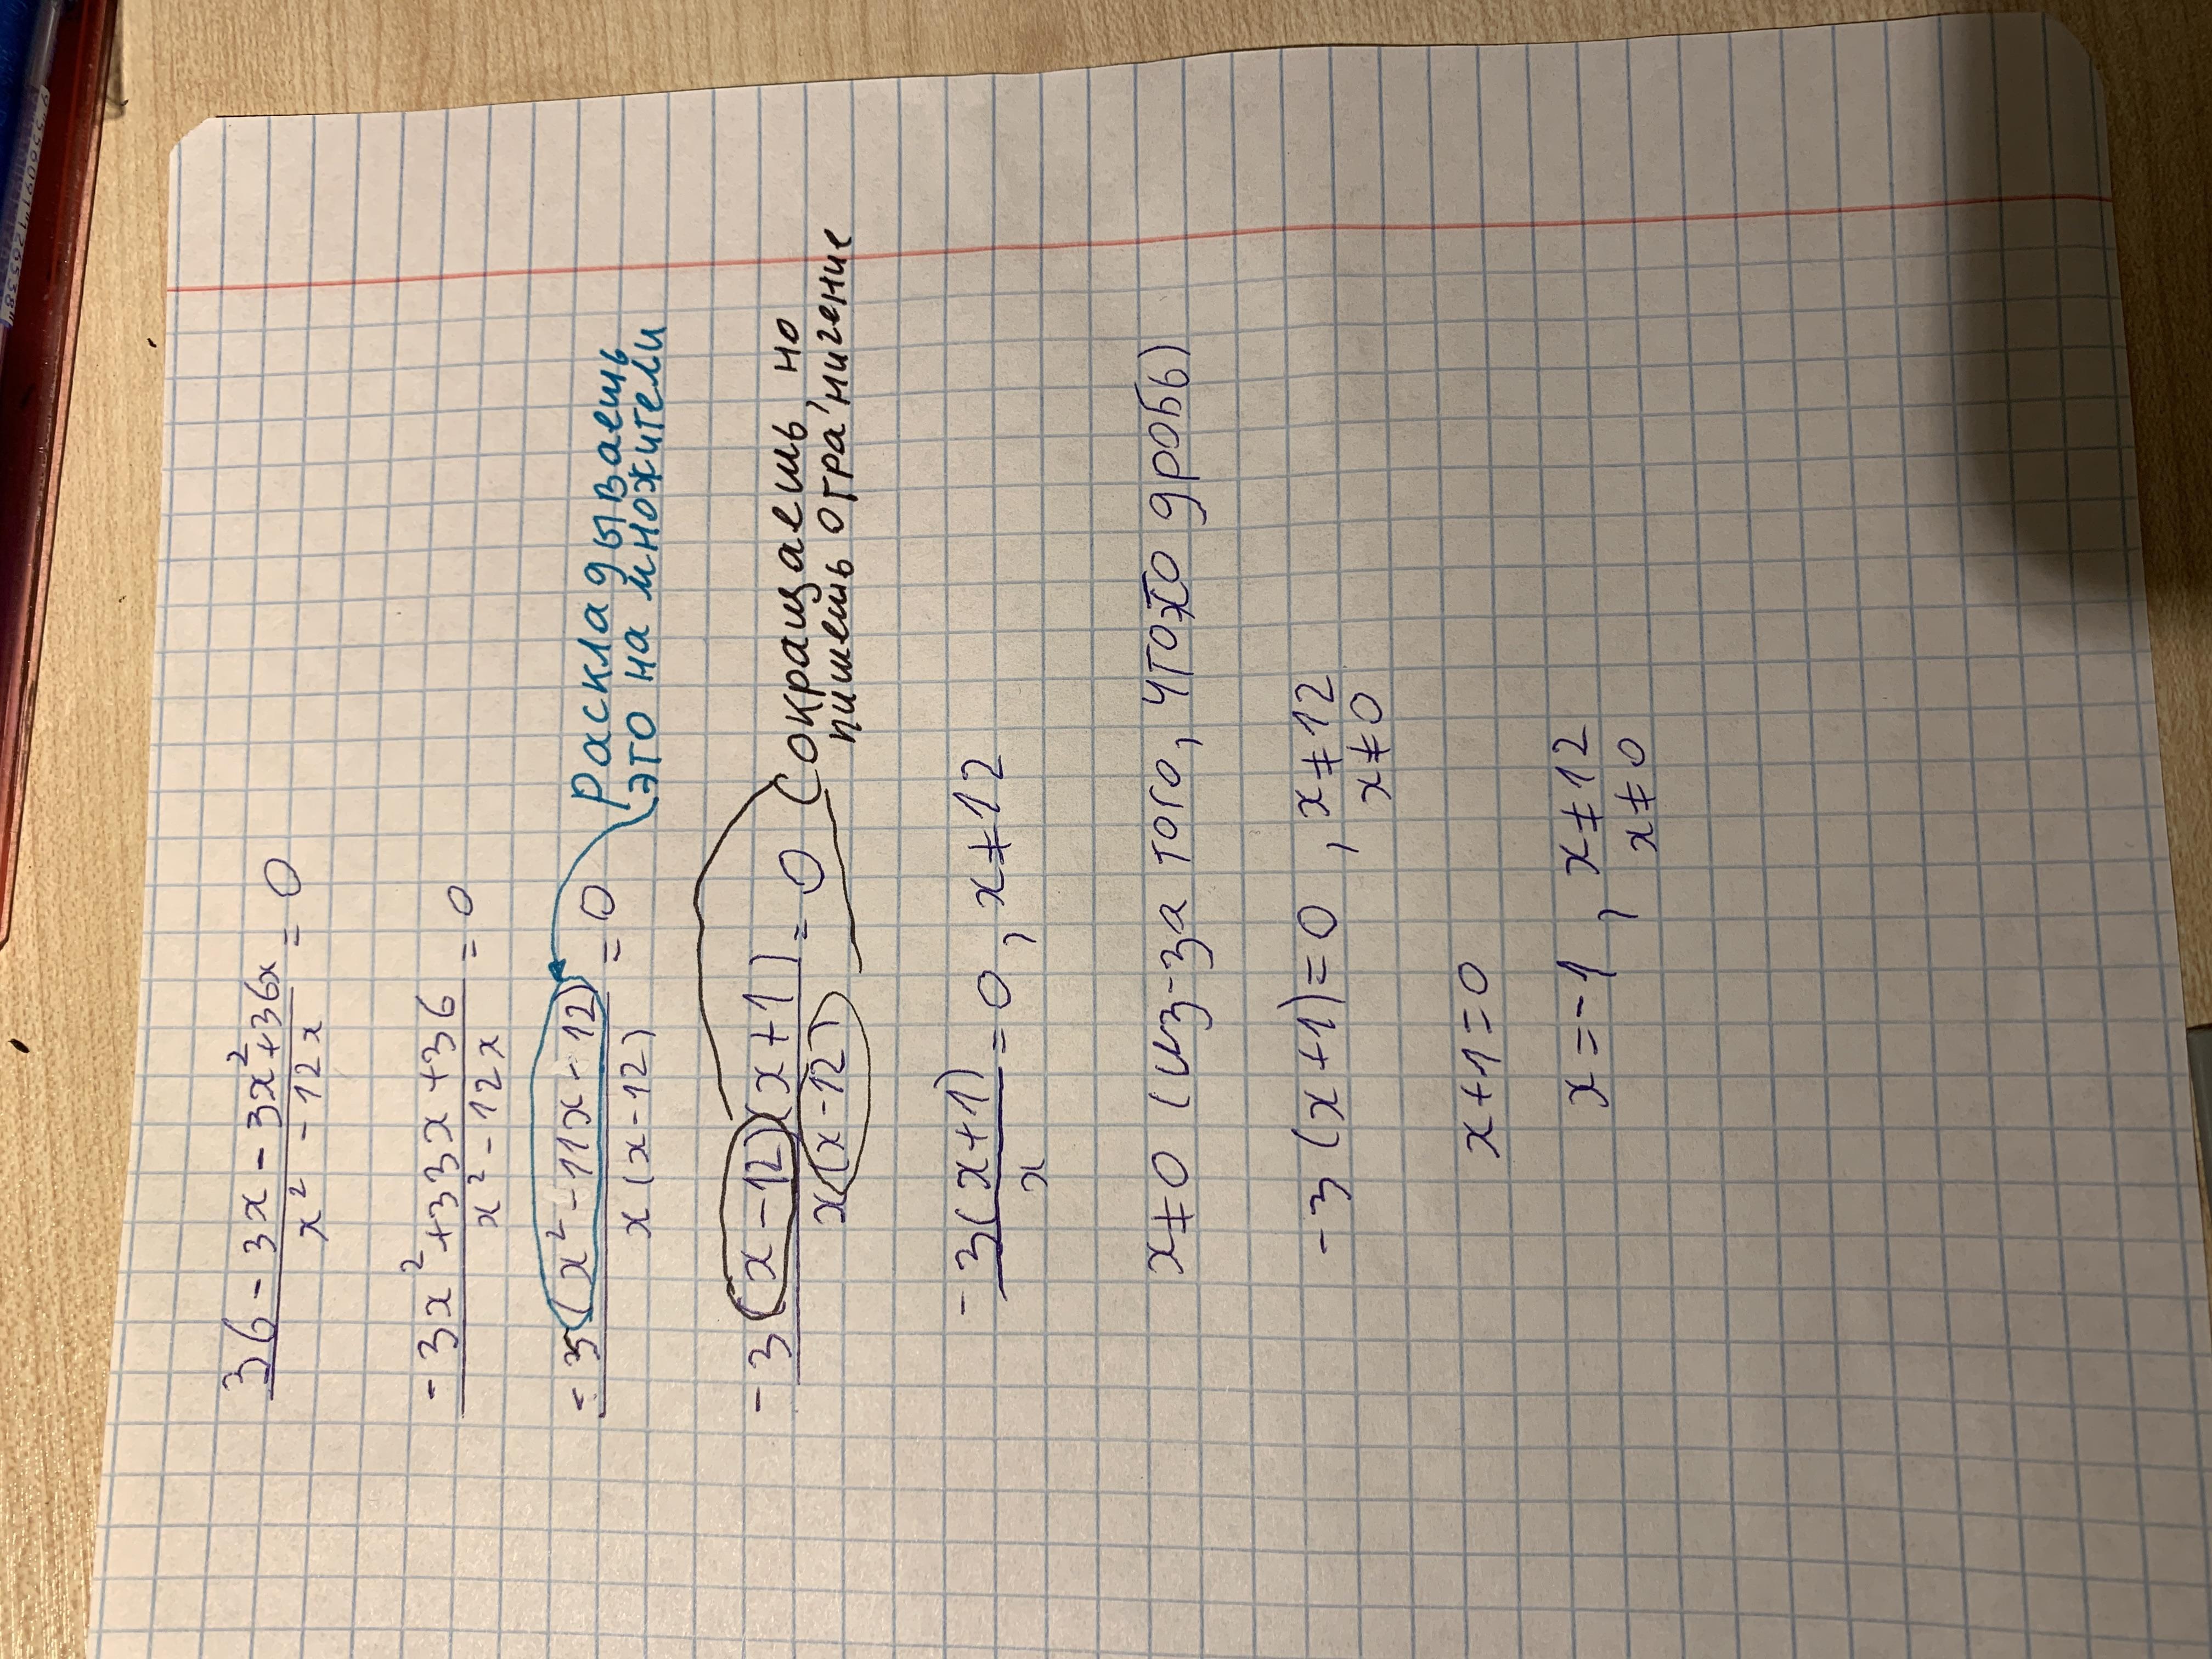 36 - 3x - 3x² + 36x / x² - 12x = 0
-3x² + 33x + 36 / x² - 12x = 0
-3(x² - 11x - 12) / x(x - 12) = 0
Раскладываешь
это на множители
-3(x - 12)(x + 1) / x(x - 12) = 0
Сокращаешь, но
пишешь ограничение
-3(x + 1) / x = 0, x ≠ 12
x ≠ 0 (из-за того, что дробь)
-3(x + 1) = 0, x ≠ 12
x ≠ 0
x + 1 = 0
x = -1, x ≠ 12
x ≠ 0